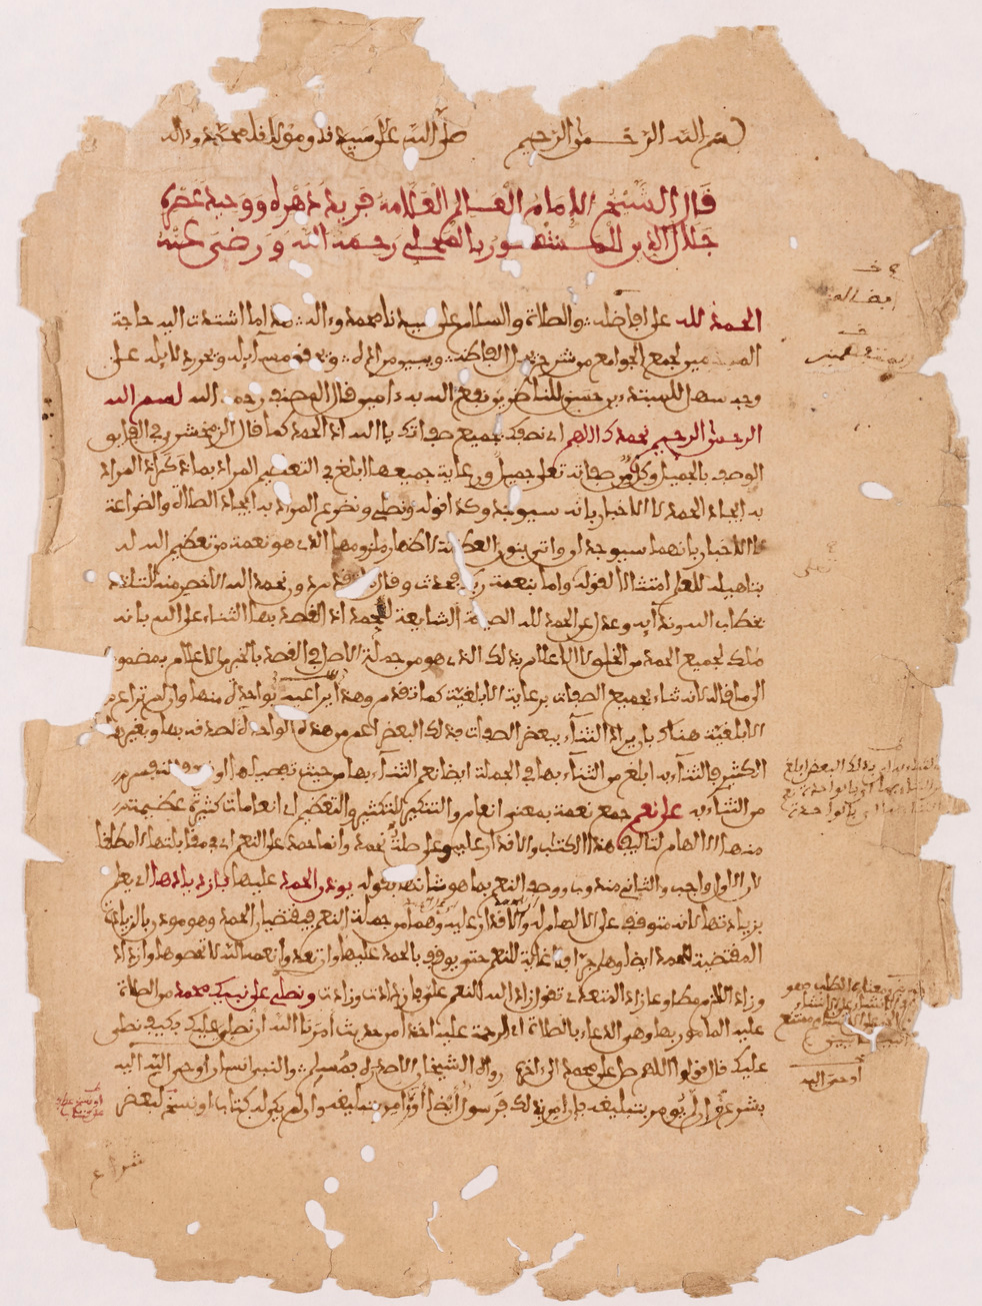 بسم الله الرحمن الرحيم صلى الله على سيدنا ومولانا محمد وءاله
قال الشيخ الامام العالم العلامة فريد دهره ووحيد عصره
جلال الدين المحلي رحمه الله ورضي عنه
الحمد لله على افضاله والصلاة والسلام على سيدنا محمد وءاله هذا ما اشتدت اليه حاجة
لجمع الجوامع من شرح يحل الفاظه ويبين مراده ويحقق مسائله ويحرر دلائله على
وجه سهل للمبتدءين حسن للناظرين نفع الله به ءامين قال المصنف رحمه الله بسم الله
الرحمن الرحيم نحمدك اللهم اي نصفك بجميع صفاتك يا الله اذ الحمد كما قال الزمخشري في الفايق
الوصف بالجميل وكل من صفاته تعلى جميل ورعاية جميعها ابلغ في التعظيم المراد بما ذكر اذ المراد
به ايجاد الحمد لا الاخبار بانه سيوجد وكذا قوله ونصلي ونضرع المراد به ايجاد الصلاة والضراعة
لا الاخبار بانهما سيوجدان واتى بنون العظمة لاظهار ملزومها الذي هو نعمة من تعظيم الله له
بتاهيله للعلم امتثالا لقوله واما بنعمة ربك فحدث وقال دون نحمد الله الاخصر منه للتلذذ
بخطاب الله وندايه وعدل عن الحمد لله الصيغة الشايعة للحمد اذ القصد بها الثناء على الله بانه
ملك لجميع الحمد من الخلق لا الاعلام بذلك الذي هو من جملة الاصل في القصد بالخبر من الاعلام بمضمونه
الى ما قاله لانه ثناء بجميع الصفات برعاية الابلغية كما تقدم وهذا بواحدة منها وان لم تراع
الابلغية هناك بان يراد الثناء ببعض الصفات فذلك البعض اعم من هذه الواحدة لصدقه بها وبغيرها
الكثير فالثناء به ابلغ من الثناء بها في الجملة ايضا نعم الثناء بها من حيث تفصيلها اوقع في النفس
من الثناء به على نعم جمع نعمة بمعنى انعام والتنكير للتكثير والتعظيم اي انعامات كثيرة عظيمة
منها الالهام لتاليف هذا الكتاب والاقدار عليه وعلى صلة نحمد وانما حمد على النعم اي في مقابلتها لا مطلقا
لان الاول واجب والثاني مندوب ووصف النعم بما هو شانها بقوله يوذن الحمد عليها بازديادها اي يعلم
بزيادتها لانه متوقف على الالهام له والاقدار عليه وهما من جملة النعم فيقتضيان الحمد وهو موذن بالزيادة
المقتضية للحمد ايضا وهلم جرا فلا غاية للنعم حتى يوقف بالحمد عليها وان تعدوا نعمة الله لا تحصوها وازداد
وزاد اللازم مطاوع زاد المتعدي تقول زاد الله النعم علي فازدادت وزادت ونصلي على نبيك محمد من الصلاة
عليه المامور بها وهي الدعاء بالصلاة اي الرحمة عليه اخذا من حديث امرنا الله ان نصلي عليك فكيف نصلي
عليك قال قولوا اللهم صل على محمد الى ءاخره رواه الشيخان الا صدره فمسلم والنبي انسان اوحي اليه
بشرع وان لم يومر بتبليغه فان امر بذلك فرسول ايضا او امر بتبليغه وان لم يكن له كتاب او نسخ لبعض
شرع
اوحي اليه